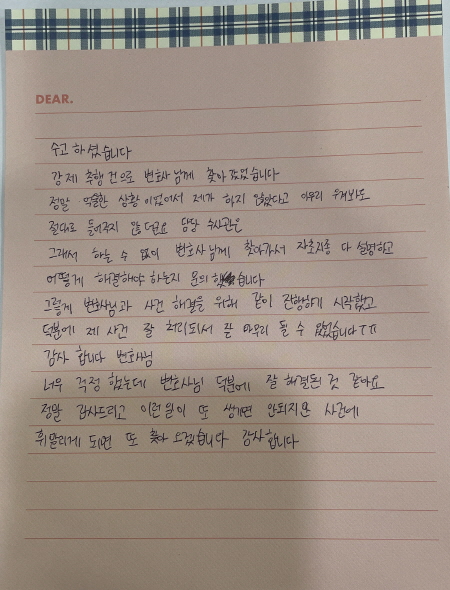 DEAR.
수고 하셨습니다
강제 추행 건으로 변호사님께 찾아 갔었습니다
정말 억울한 상황이었어서 제가 하지 않았다고 아무리 우겨봐도
절대로 들어주지 않더군요 담당 수사관은
그래서 하는 수 없이 변호사님께 찾아가서 자초지종 다 설명하고
어떻게 해결해야 하는지 문의 했습니다
그렇게 변호사님과 사건 해결을 위해 같이 진행하기 시작했고
덕분에 제 사건 잘 처리되서 끝 마무리 될 수 있었습니다 ㅠㅠ
감사 합니다 변호사님
너무 걱정 했는데 변호사님 덕분에 잘 해결된 것 같아요
정말 감사드리고 이런일이 또 생기면 안되지만 사건에
휘말리게 되면 또 찾아 오겠습니다 감사합니다